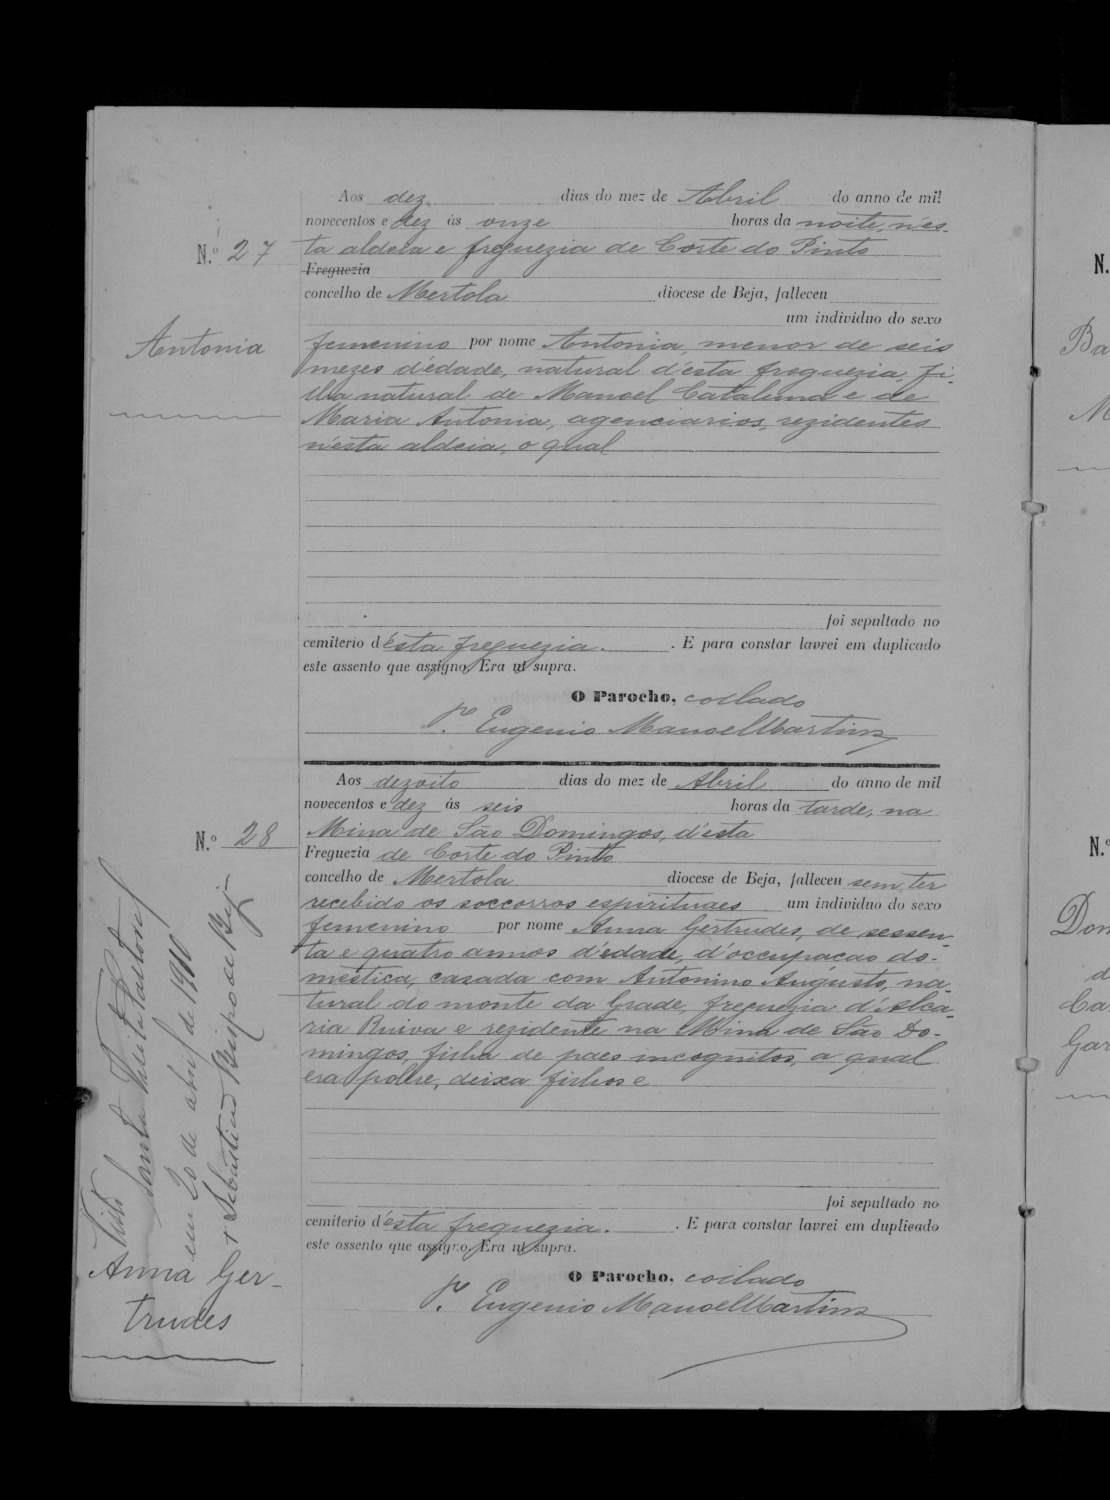 Aos dez dias do mez de Abril do anno de mil
novecentos e dez ás onze horas da noite, n'es-
N.º 27 ta aldeia e freguezia de Corte do Pinto
Freguezia
concelho de Mertola diocese de Beja, falleceu
um individuo do sexo
Antonia
femenino por nome Antonia, menor de seis
mezes d'édade, natural d'esta freguezia, fi-
lha natural de Manoel Cataluna e de
Maria Antonia, agenciarios, rezidentes
n'esta aldeia, o qual
foi sepultado no
cemiterio d'ésta freguezia. E para constar lavrei em duplicado
este assento que assigno. Era ut supra.
O Parocho, collado
P. Eugenio Manoel Martins
Aos dezoito dias do mez de Abril do anno de mil
novecentos e dez ás seis horas da tarde, na
N.º 28 Mina de São Domingos, d'esta
Freguezia de Corte do Pinto
concelho de Mertola diocese de Beja, falleceu sem ter
recebido os soccorros espirituaes um individuo do sexo
femenino por nome Anna Gertrudes, de sessen-
ta e quatro annos d'edade, d'occupação do-
mestica, casada com Antonino Augusto, na-
tural do monte da Grade, freguezia d'Alca-
ria Ruiva e rezidente na Mina de São Do-
mingos, filha de paes incognitos, a qual
era pobre, deixa filhos e
foi sepultado no
cemiterio d'ésta freguezia. E para constar lavrei em duplicado
este assento que assigno. Era ut supra.
O Parocho, collado
P. Eugenio Manoel Martins
Visto
Santa Visita Pastoral
em 20 de abril de 1910
+ Sebastião Bispo de Beja
Anna Ger-
trudes
N.
Ba
M
N.º
Dom
d
Ca
Gar